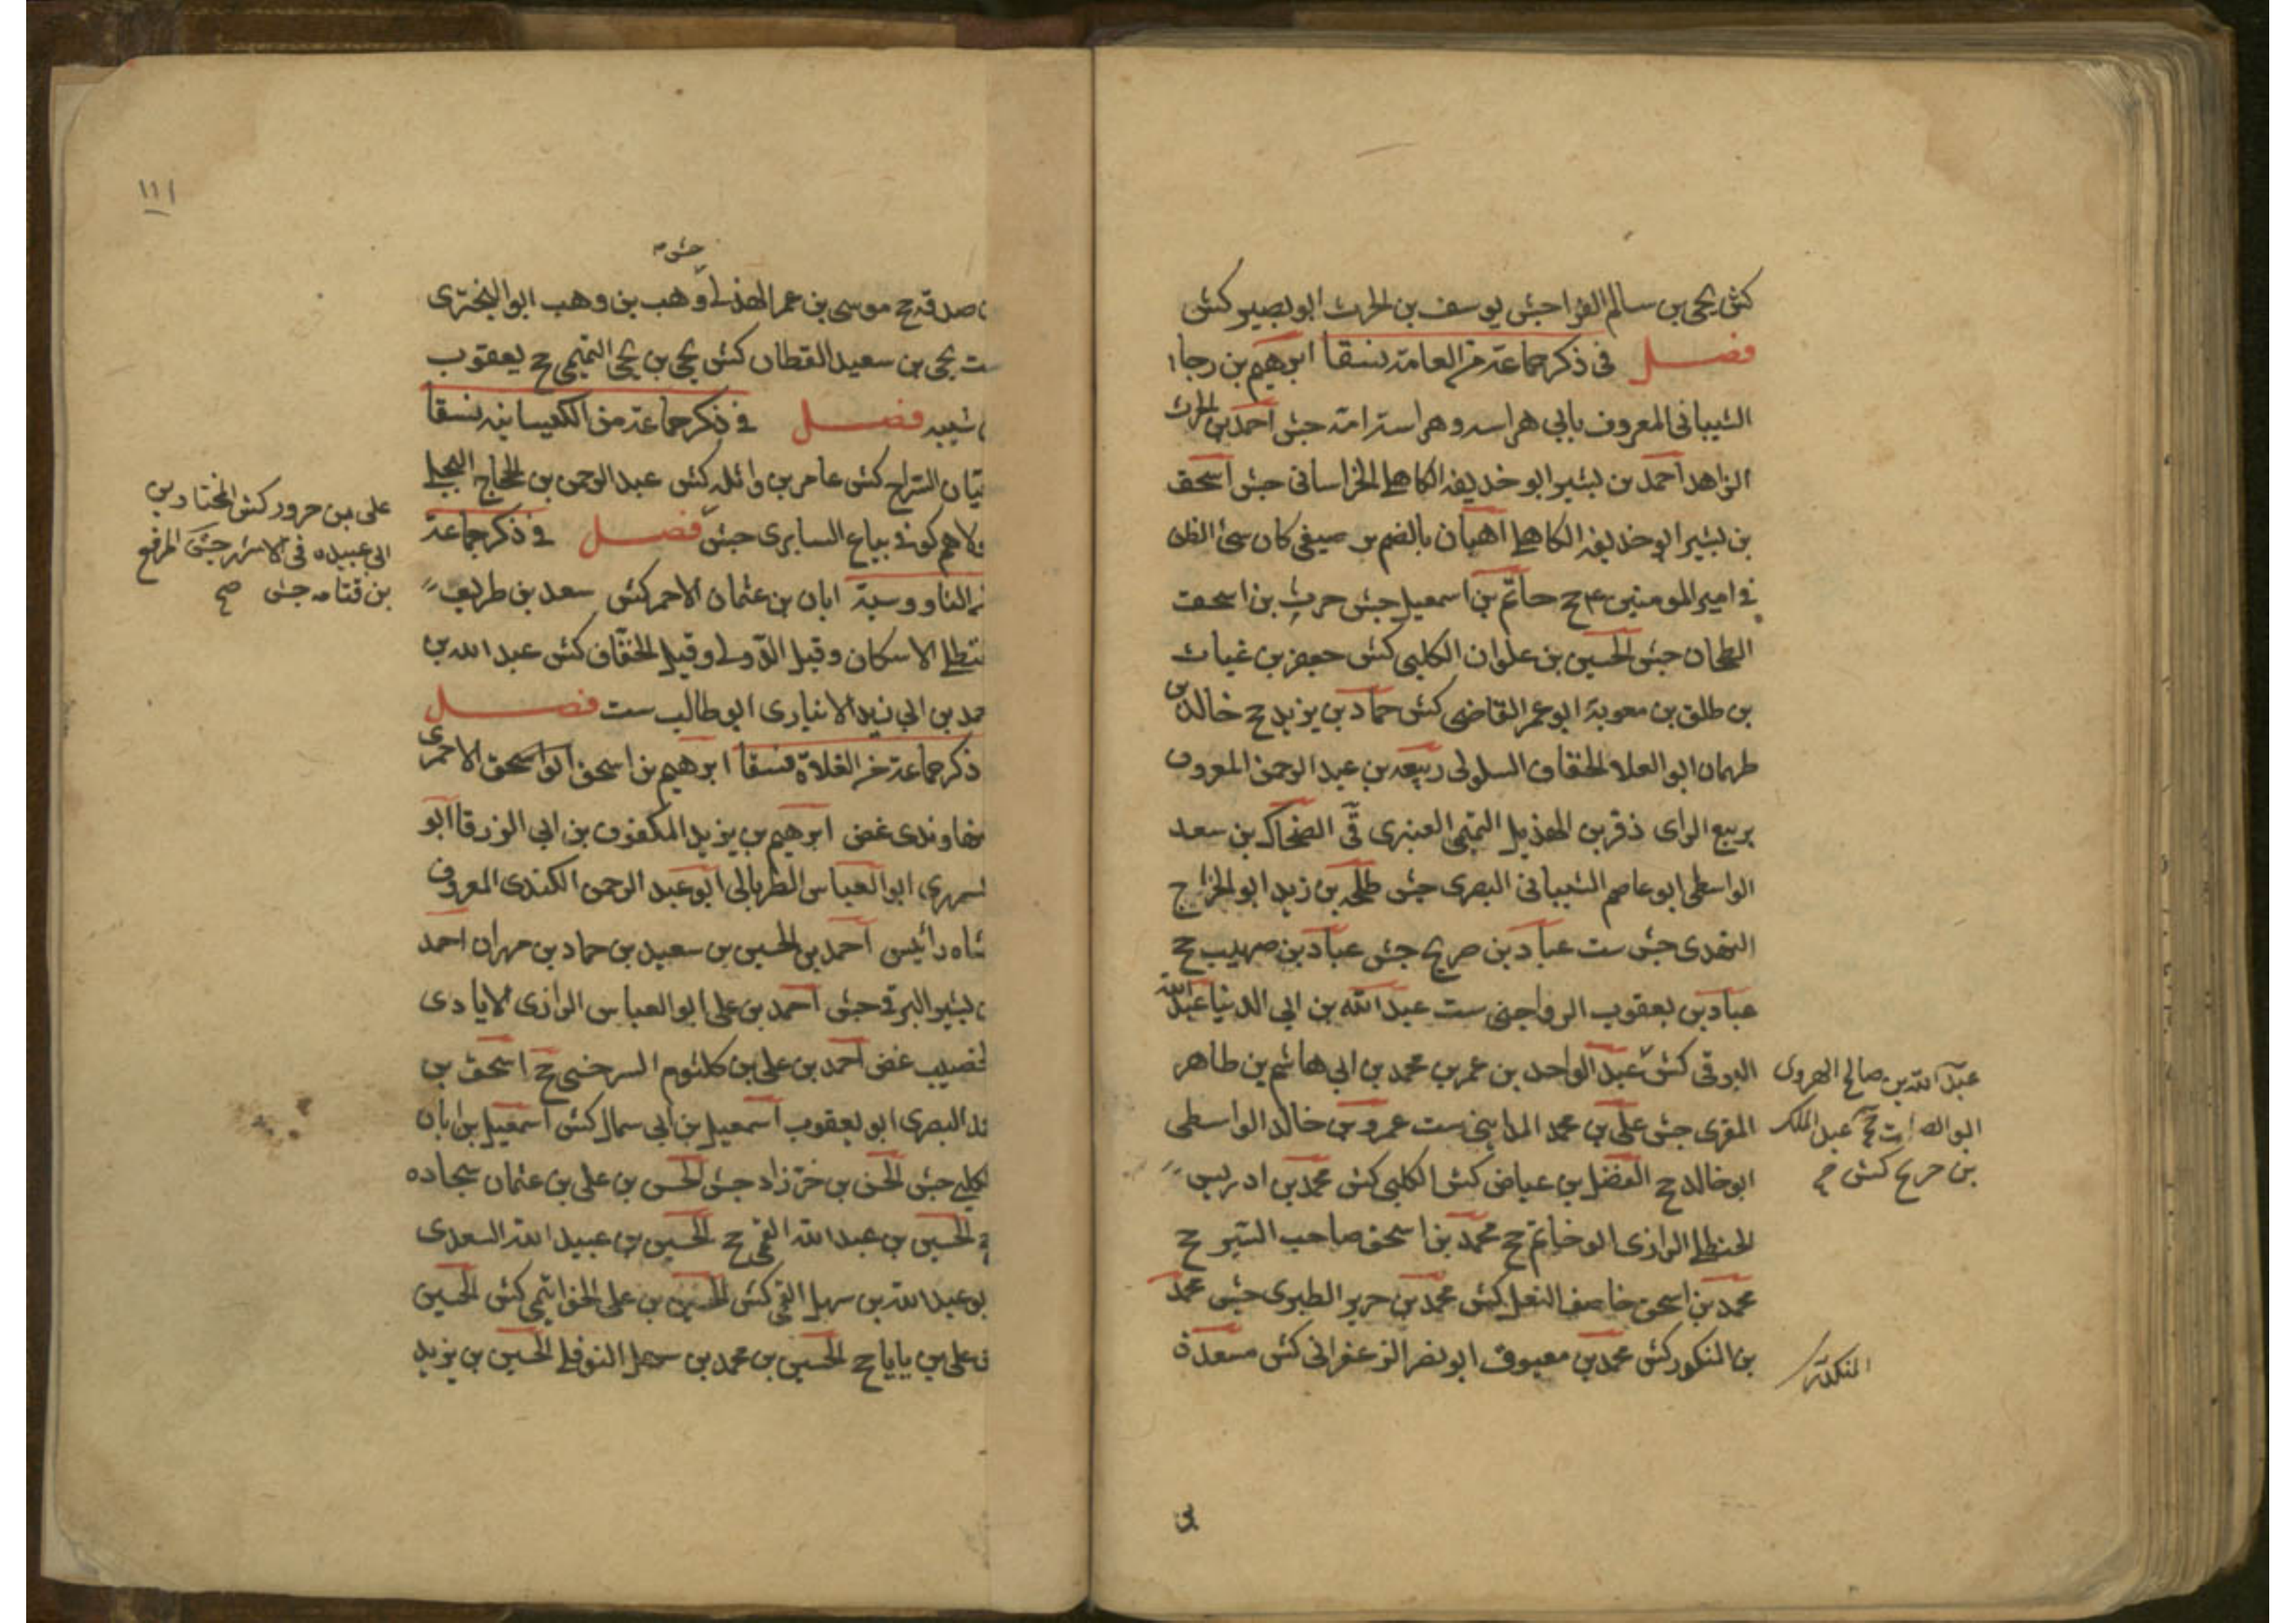 كش يحيى بن سالم الفرا جش يوسف بن الحرث ابو بصير كش
فصل في ذكر جماعة من العامة نسقا ابرهيم بن رجا
الشيباني المعروف بابي هراسه وهراسة امه جش احمد بن الحرث
الزاهد احمد بن بشير ابو خديفه الكاهلي الخراساني جش اسحق
بن بشير ابو خديفه الكاهلي اهبان بالضم بن صيفي كان سئ الظن
في امير المومنين ع ح حاتم بن اسمعيل جش حرث بن اسحق
الطحان جش الحسين بن علوان الكلبي كش حفص بن غياث
بن طلق بن معوية ابو عمر القاضي كش حماد بن يزيد ح خالد بن
طهمان ابو العلا الخفاف السلولي ربيعه بن عبد الرحمن المعروف
بربيع الراى ذفر بن الهذيل التميمي العنبرى قي الضحاك بن سعد
الواسطى ابو عاصم الشيباني البصرى جش طلحه بن زيد ابو الخزرج
النهدى جش ست عباد بن صريح جش عباد بن صهيب ح
عباد بن يعقوب الرواجني ست عبد الله بن ابي الدنيا عبد الله
البرقى كش عبد الواحد بن عمر بن محمد بن ابي هاشم بن طاهر
المقرى جش علي بن محمد المدايني ست عمرو بن خالد الواسطى
ابو خالد ح الفضل بن عياض كش الكلبي كش محمد بن ادريس
الحنظلي الرازى ابو خاتم ح محمد بن اسحق صاحب السير ح
محمد بن اسحق خاصف النعل كش محمد بن جرير الطبرى جش محمد
بن النكور كش محمد بن معيوف ابو نصر الزعفراني كش مسعدة
عبد الله بن صالح الهروى
ابو الصلت ح عبد الملك
بن جريح كش
المنكدر
١١١
جش
صدقه ح موسى بن عمر الهذلي وهب بن وهب ابو البخترى
ست يحيى بن سعيد القطان كش يحيى بن يحيى التميمي ح يعقوب
شيبه فصل في ذكر جماعة من الكيسانيه نسقا
السراج كش عامر بن واثله كش عبد الرحمن بن الحجاج البجلي
كوفي بياع السابرى جش فصل في ذكر جماعة
الناووسية ابان بن عثمان الاحمر كش سعد بن طريف
الاسكاف وقيل الدولي وقيل الخفاف كش عبد الله بن
بن ابي زيد الانبارى ابو طالب ست فصل
ذكر جماعة من الغلاة نسقا ابرهيم بن اسحق ابو اسحق الاحمرى
غض ابرهيم بن يزيد المكفوف بن ابي الزرقا ابو
ابو العباس الطربالي ابو عبد الرحمن الكندى المعروف
شاه رائيس احمد بن الحسين بن سعيد بن حماد بن مهران احمد
بشير البرقي جش احمد بن علي ابو العباس الرازى الايادى
غض احمد بن علي بن كلثوم السرخسي ح اسحق بن
البصرى ابو يعقوب اسمعيل بن ابي سمال كش اسمعيل بن ابان
جش الحسن بن خرزاد جش الحسن بن علي بن عثمان سجاده
الحسين بن عبد الله القمي ح الحسين بن عبيد الله السعدى
بو عبد الله بن سهل القمي كش الحسين بن علي الخواتيمي كش الحسين
علي بن ياباح الحسين بن محمد بن سهل النوفلي الحسين بن يزيد
على بن حزور كش المختار بن
ابي عبيده في الاشهر جش المرقع
بن قتامه جش صح